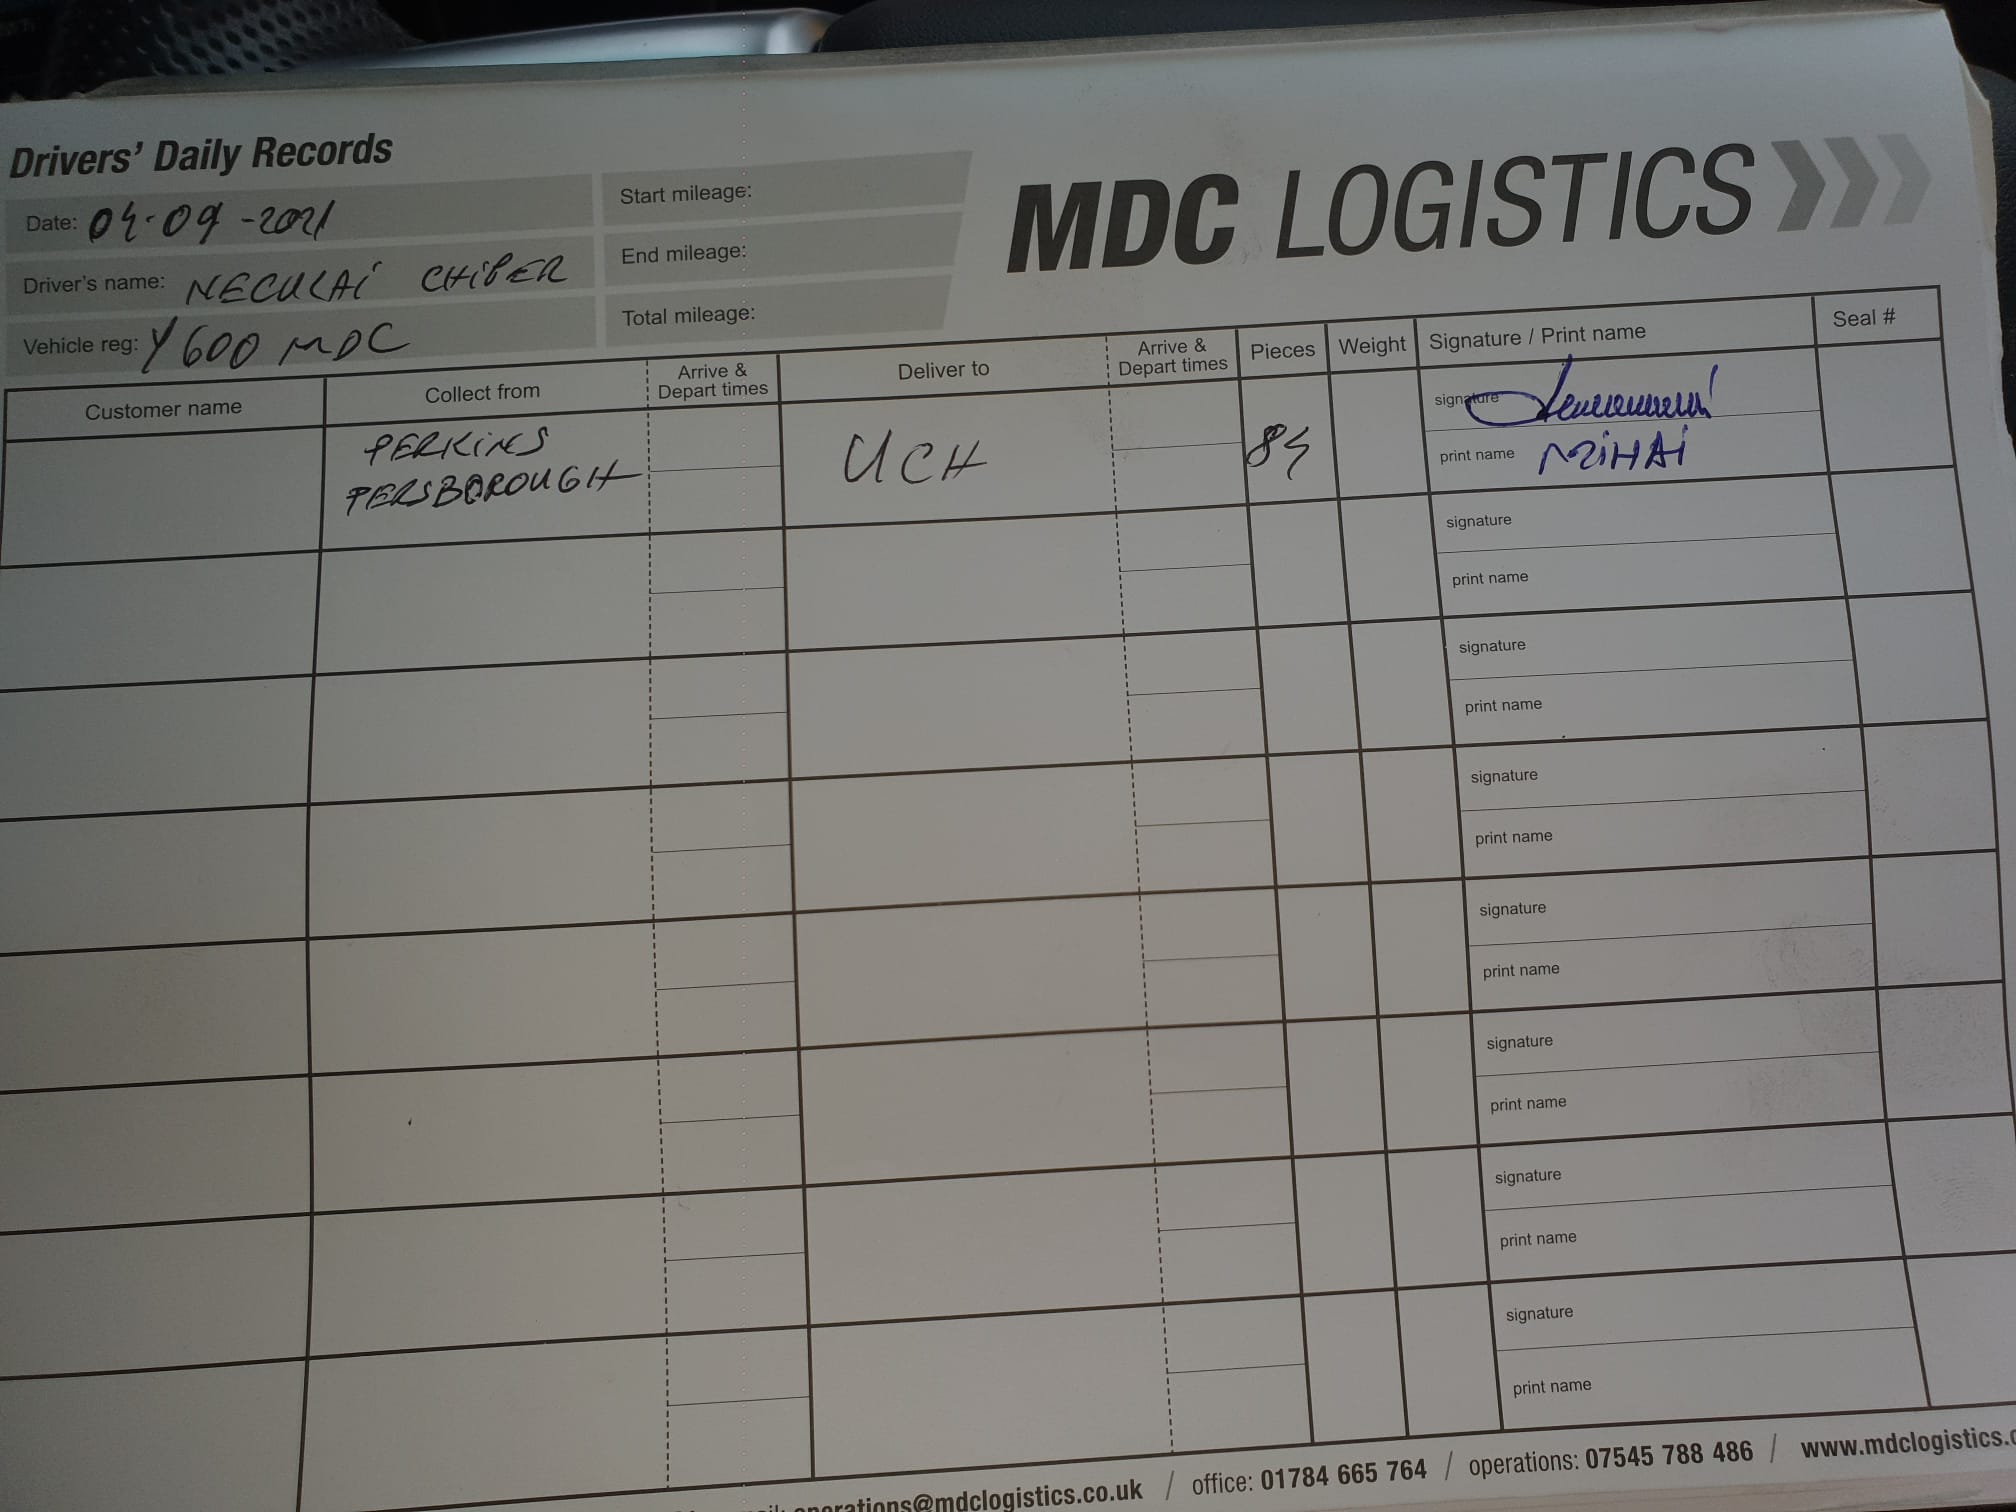 Drivers' Daily Records
MDC LOGISTICS
Date: 04-09-2021
Start mileage:
Driver's name: NECULAI CHIPER
End mileage:
Vehicle reg: Y600 MDC
Total mileage:
Customer name
Collect from
Arrive &
Depart times
Deliver to
Arrive &
Depart times
Pieces
Weight
Signature / Print name
Seal #
PERKINS
PERSBOROUGH
UCH
84
signature
print name MIHAI
signature
print name
signature
print name
signature
print name
signature
print name
signature
print name
signature
print name
signature
print name
operations@mdclogistics.co.uk / office: 01784 665 764 / operations: 07545 788 486 / www.mdclogistics.c